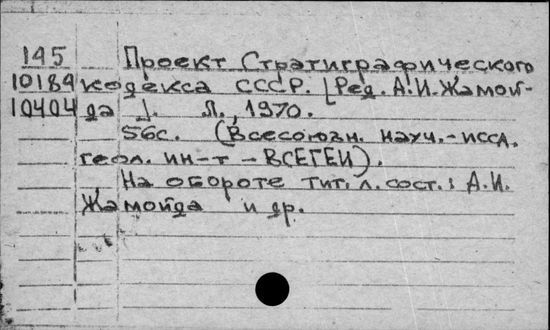 145 Проект Стратиграфического
10184 кодекса СССР. [Ред. А.И.Жамой-
10404 да]. Л., 1970.
56с. (Всесоюзн. науч.-иссл.
геол. ин-т - ВСЕГЕИ).
На обороте тит. л. сост.: А.И.
Жамойда и др.